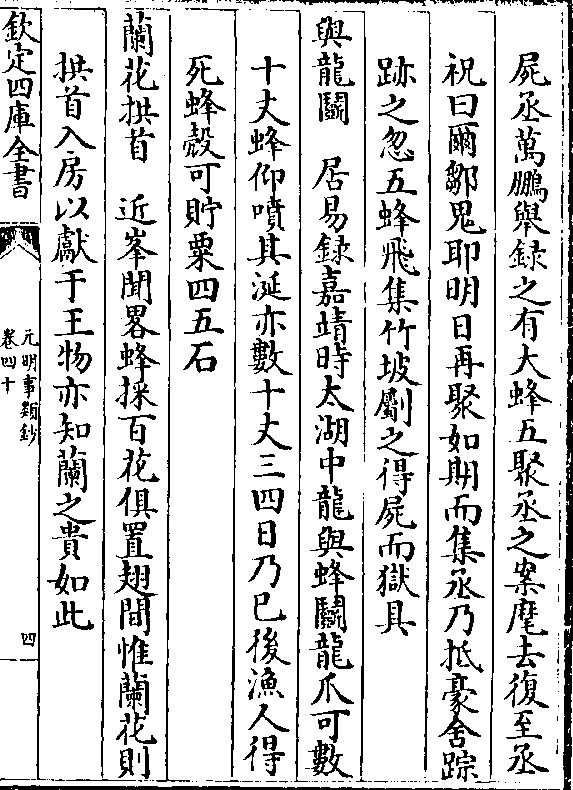 屍丞萬鵬舉録之有大蜂五聚丞之案麾去復至丞
祝曰爾鄒鬼耶明日再聚如期而集丞乃抵豪舍踪
跡之忽五蜂飛集竹坡劚之得屍而獄具
與龍鬭　居易録嘉靖時太湖中龍與蜂鬭龍爪可數
十丈蜂仰噴其涎亦數十丈三四日乃已後漁人得
死蜂殻可貯粟四五石
蘭花拱首　近峯聞畧蜂採百花俱置翅間惟蘭花則
拱首入房以獻于王物亦知蘭之貴如此
欽定四庫全書
元明事類鈔
卷四十
四